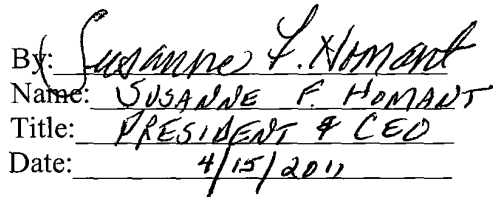 By: Susanne F. Homant
Name: SUSANNE F. HOMANT
Title: PRESIDENT & CEO
Date: 4/15/2011